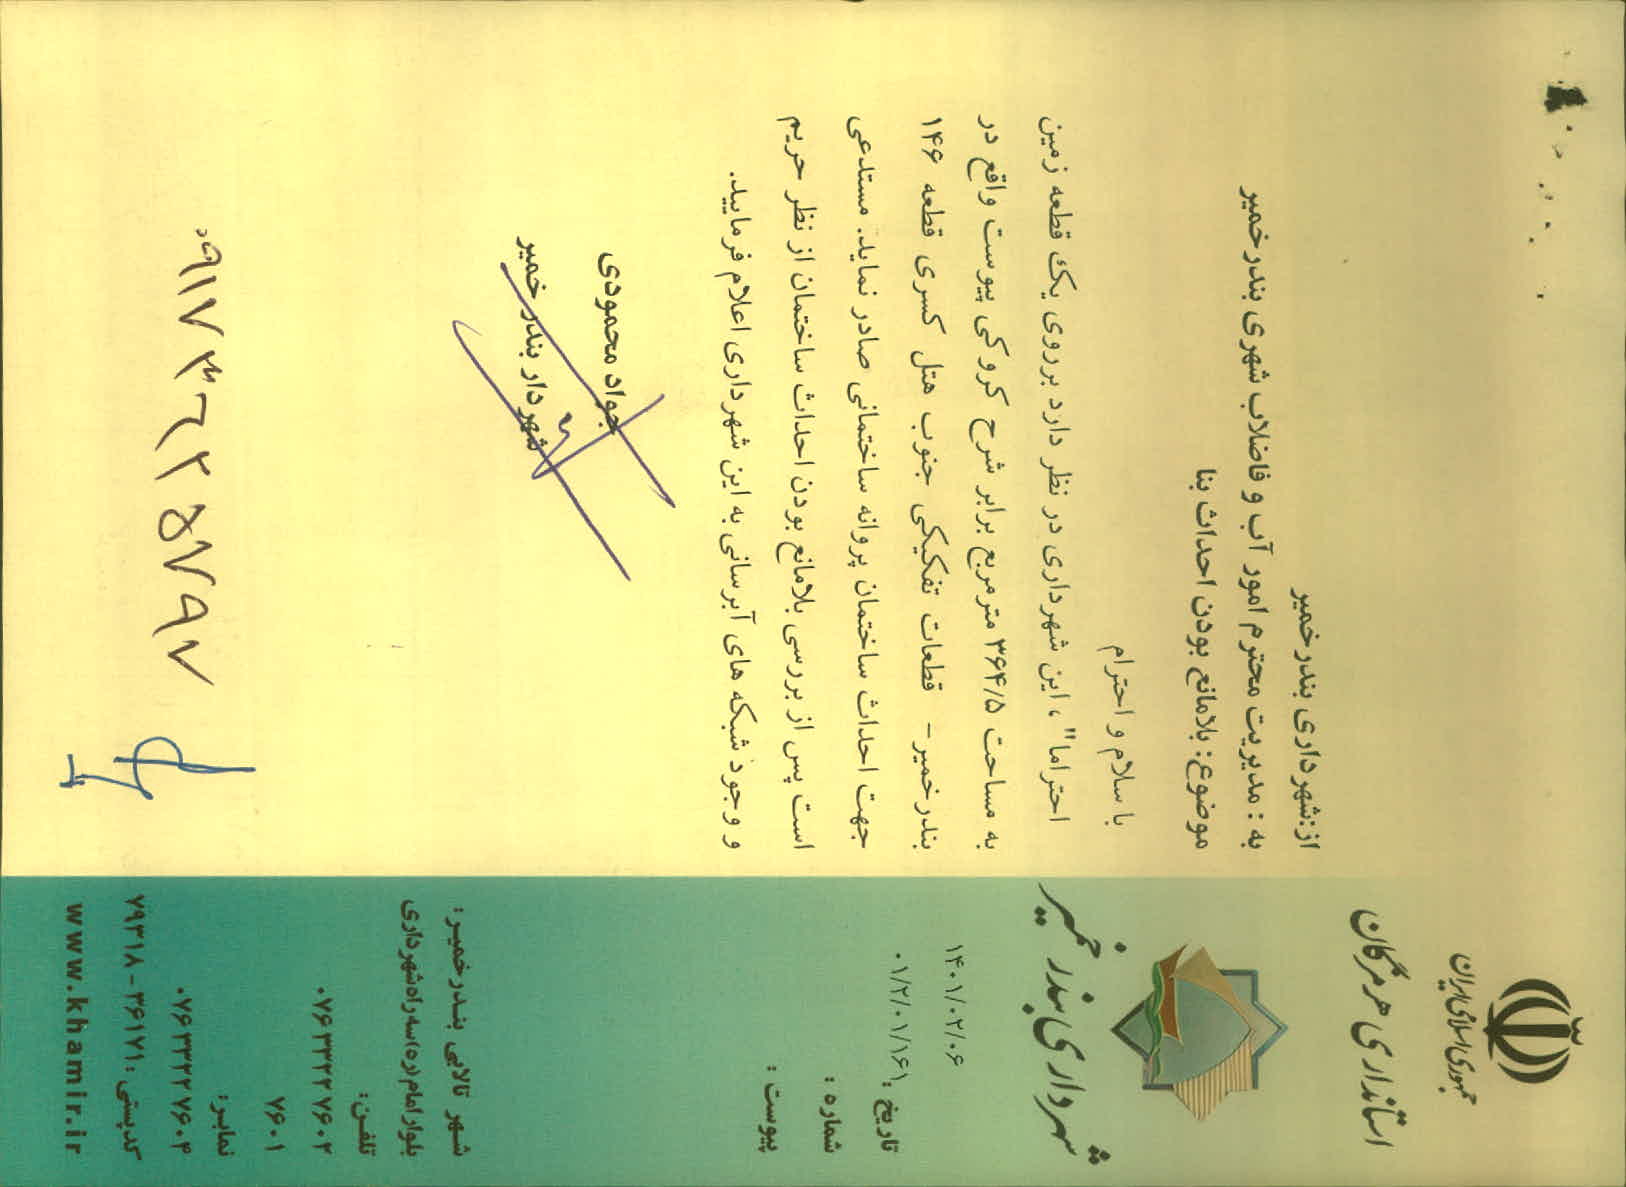 جمهوری اسلامی ایران
استانداری هرمزگان
شهرداری بندر خمیر
۱۴۰۱/۰۲/۰۶
تاریخ : ۰۱/۲/۰۱/۱۶۱
شماره :
پیوست :
از:شهرداری بندرخمیر
به : مدیریت محترم امور آب و فاضلاب شهری بندرخمیر
موضوع: بلامانع بودن احداث بنا
با سلام و احترام
احتراما" ، این شهرداری در نظر دارد برروی یک قطعه زمین
به مساحت ۳۶۴/۵ مترمربع برابر شرح کروکی پیوست واقع در
بندرخمیر- قطعات تفکیکی جنوب هتل کسری قطعه ۱۴۶
جهت احداث ساختمان پروانه ساختمانی صادر نماید. مستدعی
است پس از بررسی بلامانع بودن احداث ساختمان از نظر حریم
و وجود شبکه های آبرسانی به این شهرداری اعلام فرمایید.
جواد محمودی
شهردار بندرخمیر
شهر تالابی بندرخمیر:
بلوار امام(ره)سه راه شهرداری
تلفن:
۰۷۶۳۳۳۲۷۶۰۲
۷۶۰۱
نمابر:
۰۷۶۳۳۳۲۷۶۰۴
کدپستی : ۳۶۱۷۱ - ۷۹۳۱۸
www.khamir.ir